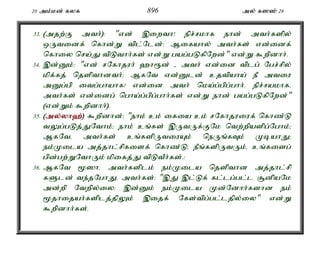 20 அம்மன் கலக 896 அல் கஸஸ் 28
33. (அதற்கு அவர்): "என் இறைவா! நிச்சமாக நான் அவர்களில்
ஒருவனைக் கொன்று விட்டேன்; ஆகையால் அவர்கள் என்னைக்
கொலை செய்து விடுவார்கள் என்று பயப்படுகிறேன்" என்று கூறினார்.
34. இன்னும்: "என் சகோதரர் ஹாரூன் - அவர் என்னை விடப் பேச்சில்
மிக்கத் தெளிவானவர்; ஆகவே என்னுடன் உதவியாய் நீ அவரை
அனுப்பி வைப்பாயாக! என்னை அவர் மெய்ப்பிப்பார். நிச்சயமாக,
அவர்கள் என்னைப் பொய்ப்பிப்பார்கள் என்று நான் பயப்படுகிறேன்"
(என்றும் கூறினார்).
35. (அல்லாஹ்) கூறினான்: "நாம் உம் கையை உம் சகோதரரைக் கொண்டு
வலுப்படுத்துவோம்; நாம் உங்கள் இருவருக்குமே வெற்றியளிப்போம்;
ஆகவே, அவர்கள் உங்களிருவரையும் நெருங்கவும் முடியாது;
நம்முடைய அத்தாட்சிகளைக் கொண்டு, நீங்களிருவரும், உங்களைப்
பின்பற்றுவோரும் மிகைத்து விடுவீர்கள்.:
36. ஆகவே மூஸா, அவர்களிடம் நம்முடைய தெளிவான அத்தாட்சி
களுடன் வந்தபோது, அவர்கள்; "இது இட்டுக் கட்டப்பட்ட சூனியமே
அன்றி வேறில்லை; இன்னும் நம்முடைய முன்னோர்களான நம்
மூதாதையர்களிடத்திலும் இதைக் கேள்விப்பட்டதில்லை" என்று
கூறினார்கள்.